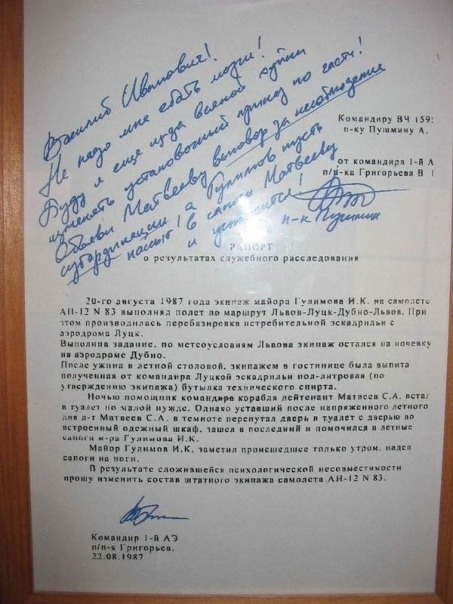 Василий Иванович!
Не надо мне ебать мозги!
Буду я еще из-за всякой хуйни
изменять установочный приказ по части!
Объяви Матвееву выговор за несоблюдение
субординации, а Гулимов пусть
нассыт в сапоги Матвееву
и успокоится!
п-к Пушмин
Командиру ВЧ 159:
п-ку Пушмину А.
от командира 1-й А
п/п-ка Григорьева В І
РАПОРТ
о результатах служебного расследования
20-го августа 1987 года экипаж майора Гулимова И.К. на самолете
АН-12 N 83 выполнял полет по маршрут Львов-Луцк-Дубно-Львов. При
этом производилась перебазировка истребительной эскадрильи с
аэродрома Луцк.
Выполнив задание, по метеоусловиям Львова экипаж остался на ночевку
на аэродроме Дубно.
После ужина в летной столовой, экипажем в гостинице была выпита
полученная от командира Луцкой эскадрильи пол-литровая (по
утверждению экипажа) бутылка технического спирта.
Ночью помощник командира корабля лейтенант Матвеев С.А. встал
в туалет по малой нужде. Однако уставший после напряженного летного
дня л-т Матвеев С.А. в темноте перепутал дверь в туалет с дверью во
встроенный одежный шкаф, зашел в последний и помочился в летные
сапоги м-ра Гулимова И.К.
Майор Гулимов И.К. заметил происшедшее только утром, надев
сапоги на ноги.
В результате сложившейся психологической несовместимости
прошу изменить состав штатного экипажа самолета АН-12 N 83.
Командир 1-й АЭ
п/п-к Григорьев.
22.08.1987